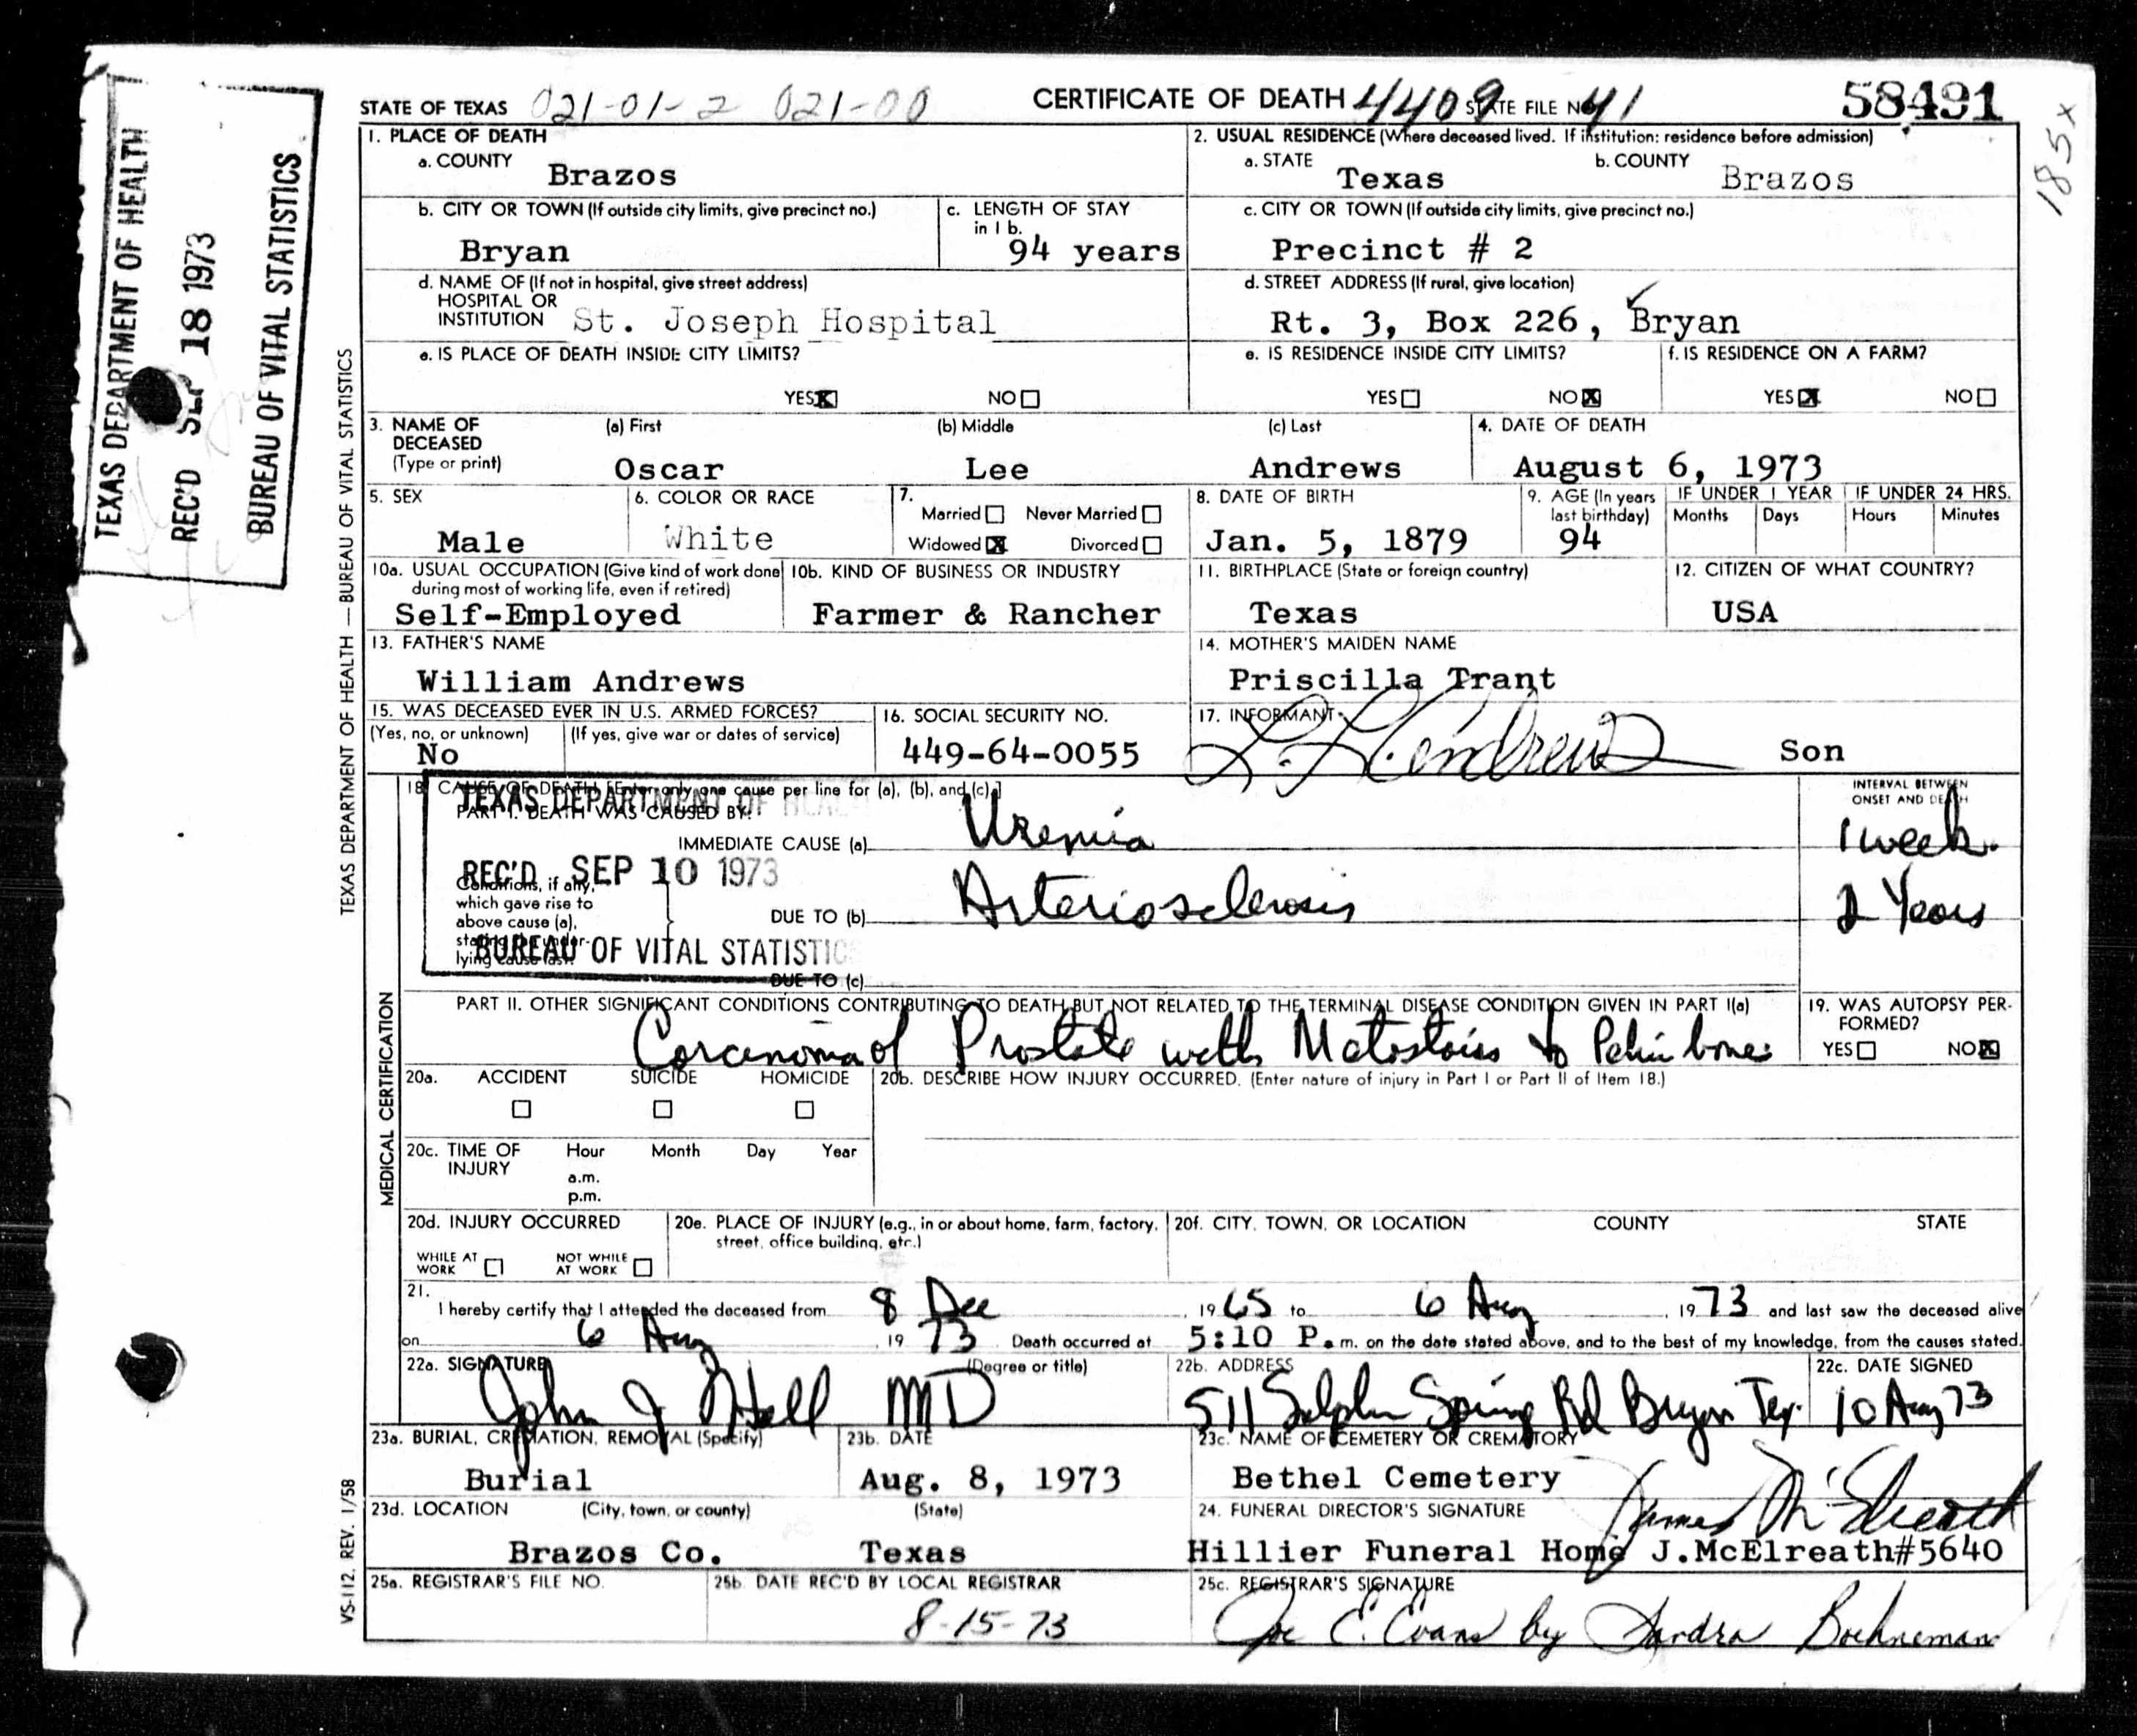 TEXAS DEPARTMENT OF HEALTH
REC'D SEP 18 1973
BUREAU OF VITAL STATISTICS
STATE OF TEXAS 021-01-2 021-00 CERTIFICATE OF DEATH 4409 STATE FILE NO. 41 58491
185x
1. PLACE OF DEATH
a. COUNTY Brazos
2. USUAL RESIDENCE (Where deceased lived. If institution: residence before admission)
a. STATE Texas b. COUNTY Brazos
b. CITY OR TOWN (If outside city limits, give precinct no.) Bryan
c. LENGTH OF STAY in 1 b. 94 years
c. CITY OR TOWN (If outside city limits, give precinct no.) Precinct # 2
d. NAME OF (If not in hospital, give street address) HOSPITAL OR INSTITUTION St. Joseph Hospital
d. STREET ADDRESS (If rural, give location) Rt. 3, Box 226, Bryan
e. IS PLACE OF DEATH INSIDE CITY LIMITS? YES X NO
e. IS RESIDENCE INSIDE CITY LIMITS? YES NO X
f. IS RESIDENCE ON A FARM? YES X NO
3. NAME OF DECEASED (Type or print) (a) First Oscar (b) Middle Lee (c) Last Andrews
4. DATE OF DEATH August 6, 1973
5. SEX Male
6. COLOR OR RACE White
7. Married Never Married Widowed X Divorced
8. DATE OF BIRTH Jan. 5, 1879
9. AGE (In years last birthday) 94
IF UNDER 1 YEAR Months Days
IF UNDER 24 HRS. Hours Minutes
10a. USUAL OCCUPATION (Give kind of work done during most of working life, even if retired) Self-Employed
10b. KIND OF BUSINESS OR INDUSTRY Farmer & Rancher
11. BIRTHPLACE (State or foreign country) Texas
12. CITIZEN OF WHAT COUNTRY? USA
13. FATHER'S NAME William Andrews
14. MOTHER'S MAIDEN NAME Priscilla Trant
15. WAS DECEASED EVER IN U.S. ARMED FORCES? (Yes, no, or unknown) No (If yes, give war or dates of service)
16. SOCIAL SECURITY NO. 449-64-0055
17. INFORMANT L. L. Andrews Son
TEXAS DEPARTMENT OF HEALTH — BUREAU OF VITAL STATISTICS
MEDICAL CERTIFICATION
18. CAUSE OF DEATH [Enter only one cause per line for (a), (b), and (c).]
TEXAS DEPARTMENT OF HEALTH
REC'D SEP 10 1973
BUREAU OF VITAL STATISTICS
PART I. DEATH WAS CAUSED BY:
INTERVAL BETWEEN ONSET AND DEATH
IMMEDIATE CAUSE (a) Uremia 1 week.
Conditions, if any, which gave rise to above cause (a), stating the under-lying cause last.
DUE TO (b) Arteriosclerosis 2 Years
DUE TO (c)
PART II. OTHER SIGNIFICANT CONDITIONS CONTRIBUTING TO DEATH BUT NOT RELATED TO THE TERMINAL DISEASE CONDITION GIVEN IN PART I(a)
Carcinoma of Prostate with Metastasis to Pelvic bones
19. WAS AUTOPSY PERFORMED? YES NO X
20a. ACCIDENT SUICIDE HOMICIDE
20b. DESCRIBE HOW INJURY OCCURRED. (Enter nature of injury in Part I or Part II of Item 18.)
20c. TIME OF INJURY Hour a.m. p.m. Month Day Year
20d. INJURY OCCURRED WHILE AT WORK NOT WHILE AT WORK
20e. PLACE OF INJURY (e.g., in or about home, farm, factory, street, office building, etc.)
20f. CITY, TOWN, OR LOCATION COUNTY STATE
21. I hereby certify that I attended the deceased from 8 Dec, 1965 to 6 Aug, 1973 and last saw the deceased alive
on 6 Aug, 1973. Death occurred at 5:10 P.m. on the date stated above, and to the best of my knowledge, from the causes stated.
22a. SIGNATURE (Degree or title) John J Hall MD
22b. ADDRESS 511 Sulphur Spring Rd Bryan Tex.
22c. DATE SIGNED 10 Aug 73
23a. BURIAL, CREMATION, REMOVAL (Specify) Burial
23b. DATE Aug. 8, 1973
23c. NAME OF CEMETERY OR CREMATORY Bethel Cemetery
23d. LOCATION (City, town, or county) (State) Brazos Co. Texas
24. FUNERAL DIRECTOR'S SIGNATURE James McElreath
Hillier Funeral Home J.McElreath#5640
25a. REGISTRAR'S FILE NO.
25b. DATE REC'D BY LOCAL REGISTRAR 8-15-73
25c. REGISTRAR'S SIGNATURE Joe E. Evans by Sandra Boehneman
VS-112, REV. 1/58